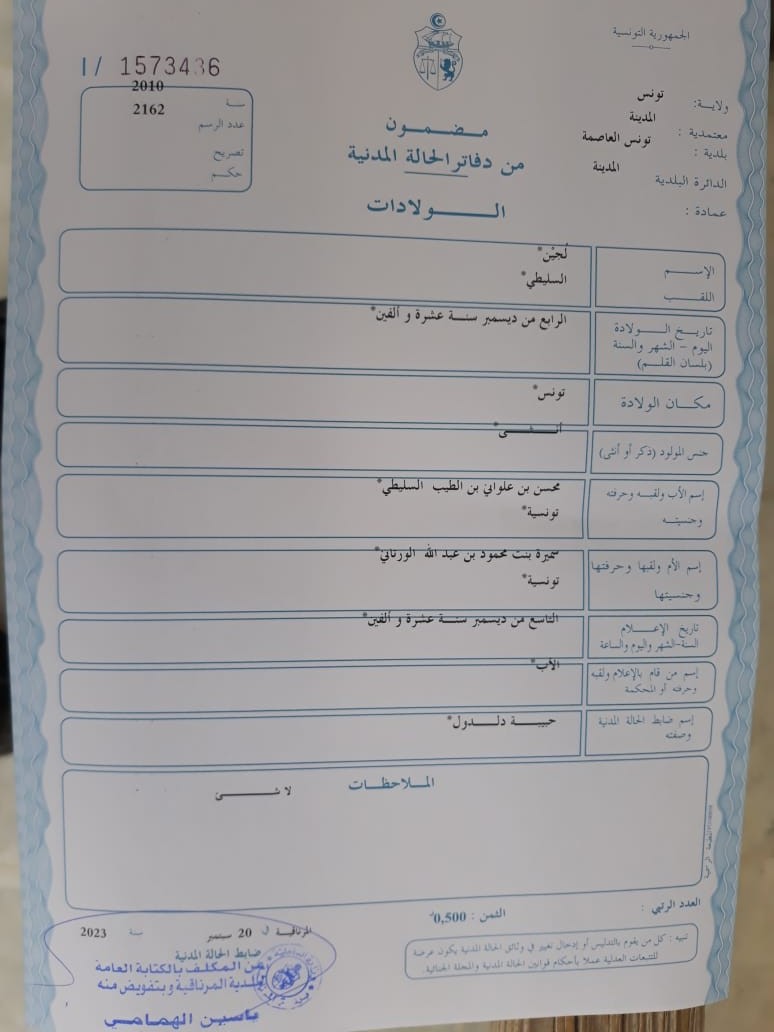 الجمهورية التونسية
I / 1573436
ولايـة: تونس
معتمدية : المدينة
بلدية : تونس العاصمة
الدائرة البلدية المدينة
عمادة :
سنة 2010
عدد الرسم 2162
تصريح
حكم
مضمون
من دفاتر الحالة المدنية
الولادات
الإسم لُجَيْن*
اللقب السليطي*
تاريخ الولادة الرابع من ديسمبر سنة عشرة و ألفين*
اليوم - الشهر والسنة
(بلسان القلم)
مكان الولادة تونس*
جنس المولود (ذكر أو أنثى) أنثى*
إسم الأب ولقبه وحرفته محسن بن علواني بن الطيب السليطي*
وجنسيته تونسية*
إسم الأم ولقبها وحرفتها سميرة بنت محمود بن عبد الله الورتاني*
وجنسيتها تونسية*
تاريخ الإعلام التاسع من ديسمبر سنة عشرة و ألفين*
السنة-الشهر واليوم والساعة
إسم من قام بالإعلام ولقبه الأب*
وحرفته أو المحكمة
إسم ضابط الحالة المدنية حبيبة دلدول*
وصفته
الملاحظات
لا شئ
المطبعة الرسمية
العدد الرتبي :
الثمن : 0,500د
تنبيه : كل من يقوم بالتدليس أو إدخال تغيير في وثائق الحالة المدنية يكون عرضة
للتتبعات العدلية عملا بأحكام قوانين الحالة المدنية والمجلة الجنائية.
المرناقية في 20 سبتمبر سنة 2023
ضابط الحالة المدنية
عن المكلف بالكتابة العامة
لبلدية المرناقية وبتفويض منه
ياسين الهمامي